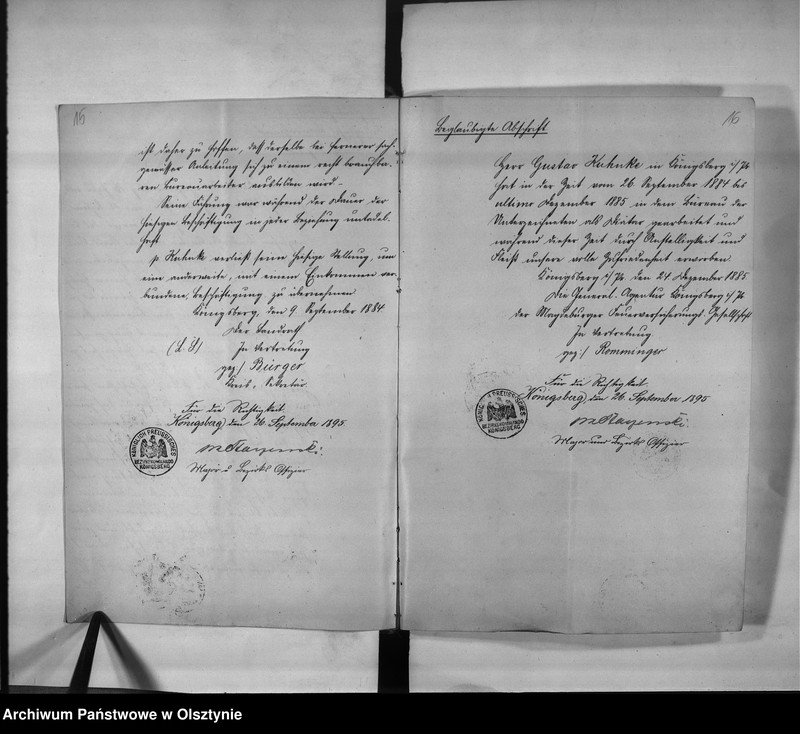 15
ist daher zu hoffen, daß derselbe bei fernerer sach-
gemäßer Anleitung sich zu einem recht brauchba-
ren Bureauarbeiter ausbilden wird.
Seine Führung war während der Dauer der
hiesigen Beschäftigung in jeder Beziehung untadel-
haft
p. Kuhnke verließ seine hiesige Stellung, um
eine anderweite, mit einem Einkommen ver-
bundene, Beschäftigung zu übernehmen
Königsberg, den 9 September 1884
Der Landrath
(L. S) In Vertretung
gez/ Bürger
Kreis-Sekretär.
Für die Richtigkeit
Königsberg, den 26. September 1895.
Major u Bezirks Offizier
KÖNIGLICH PREUSSISCHES
BEZIRKSKOMMANDO
KÖNIGSBERG
16
Beglaubigte Abschrift
Herr Gustav Kuhnke in Königsberg i/Pr
hat in der Zeit vom 26 September 1884 bis
ultimo Dezember 1885 in dem Büreau der
Unterzeichneten als Skriber gearbeitet und
während dieser Zeit durch Anstelligkeit und
Fleiß unsere volle Zufriedenheit erworben.
Königsberg i/Pr den 24 Dezember 1885.
Die General-Agentur Königsberg i/Pr
der Magdeburger Feuerversicherungs-Gesellschaft
In Vertretung
gez/ Romminger
Für die Richtigkeit
Königsberg, den 26. September 1895
Major und Bezirks Offizier
KÖNIGLICH PREUSSISCHES
BEZIRKSKOMMANDO
KÖNIGSBERG
Archiwum Państwowe w Olsztynie